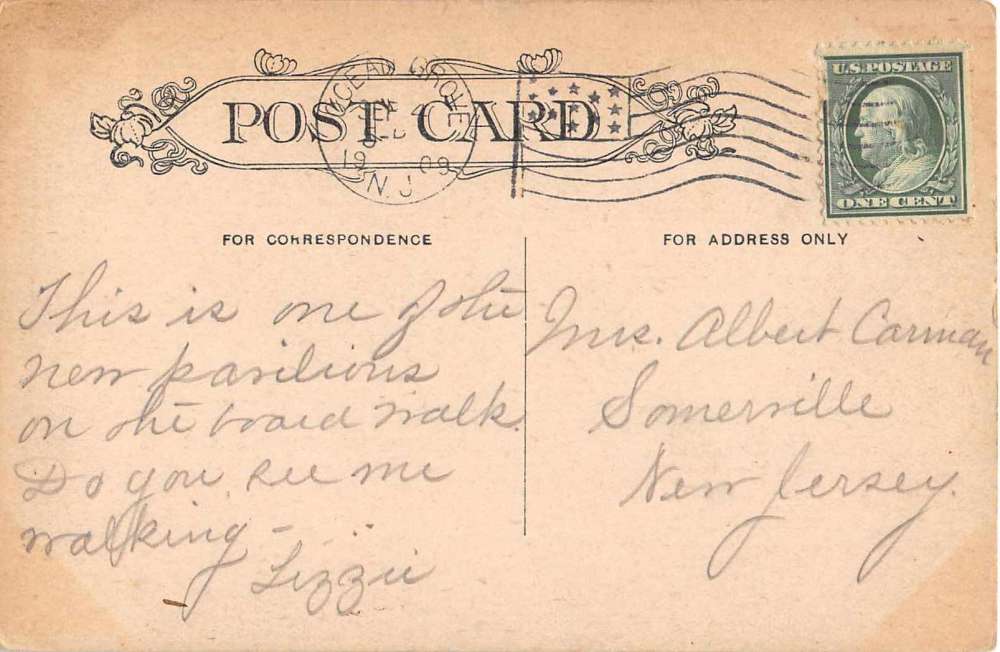 POST CARD
OCEAN GROVE
19 09
N.J.
U.S. POSTAGE
ONE CENT
FOR CORRESPONDENCE
This is one of the
new pavilions
on the board walk.
Do you see me
walking -
Lizzie
FOR ADDRESS ONLY
Mrs. Albert Carman
Somerville
New Jersey.